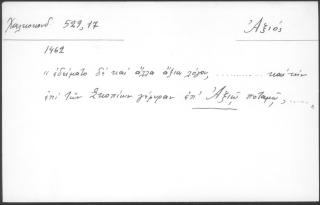 Χαλκοκονδ 529,17 Ἀξιός
1462
" ἐδείματο δὲ καὶ ἄλλα ἄξια λόγου, ............ καὶ τὴν
ἐπὶ τῶν Σκοπίων γέφυραν ἐπ' Ἀξιῷ ποταμῷ, ..... "